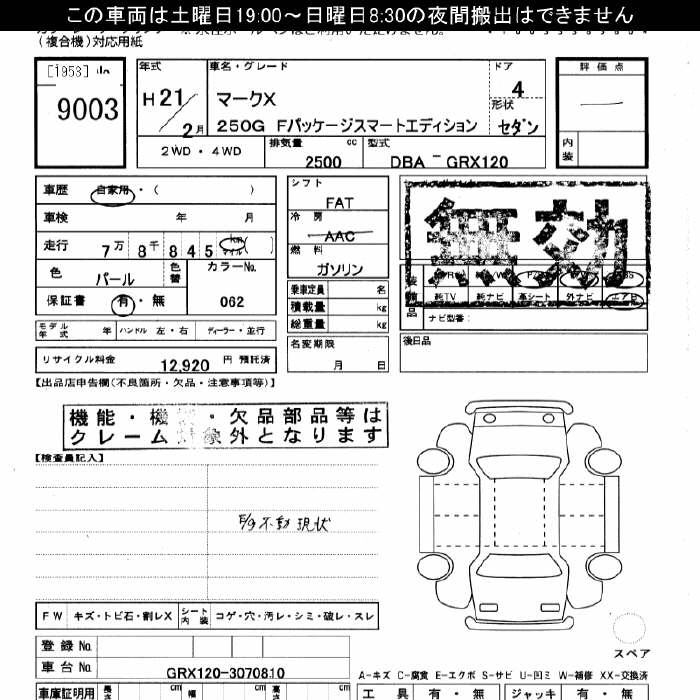 この車両は土曜日19:00～日曜日8:30の夜間搬出はできません
(複合機)対応用紙
[1953]
9003
年式
H21/2月
車名・グレード
マークX
250G Fパッケージスマートエディション
ドア
4
形状
セダン
評価点
内装
2WD・4WD
排気量 2500 cc
型式 DBA-GRX120
車歴 自家用・( )
車検 年 月
走行 7万8千845 km マイル ( )
色 パール
色替
カラーNo.
062
保証書 有・無
シフト
FAT
冷房
AAC
燃料
ガソリン
無効
純TV 純ナビ 革シート 外ナビ エアB
ナビ型番:
乗車定員 名
積載量 kg
総重量 kg
モデル年式 年 ハンドル 左・右 ディーラー・並行
リサイクル料金 12,920 円 預託済
名変期限
月 日
後日品
【出品店申告欄(不良箇所・欠品・注意事項等)】
機能・機・欠品部品等は
クレーム対象外となります
【検査員記入】
E/g不動 現状
FW キズ・トビ石・割レX シート内装 コゲ・穴・汚レ・シミ・破レ・スレ
登録No.
車台No. GRX120-3070810
スペア
A-キズ C-腐食 E-エクボ S-サビ U-凹ミ W-補修 XX-交換済
車庫証明用 長さ cm 幅 cm 高さ cm
工具 有・無 ジャッキ 有・無